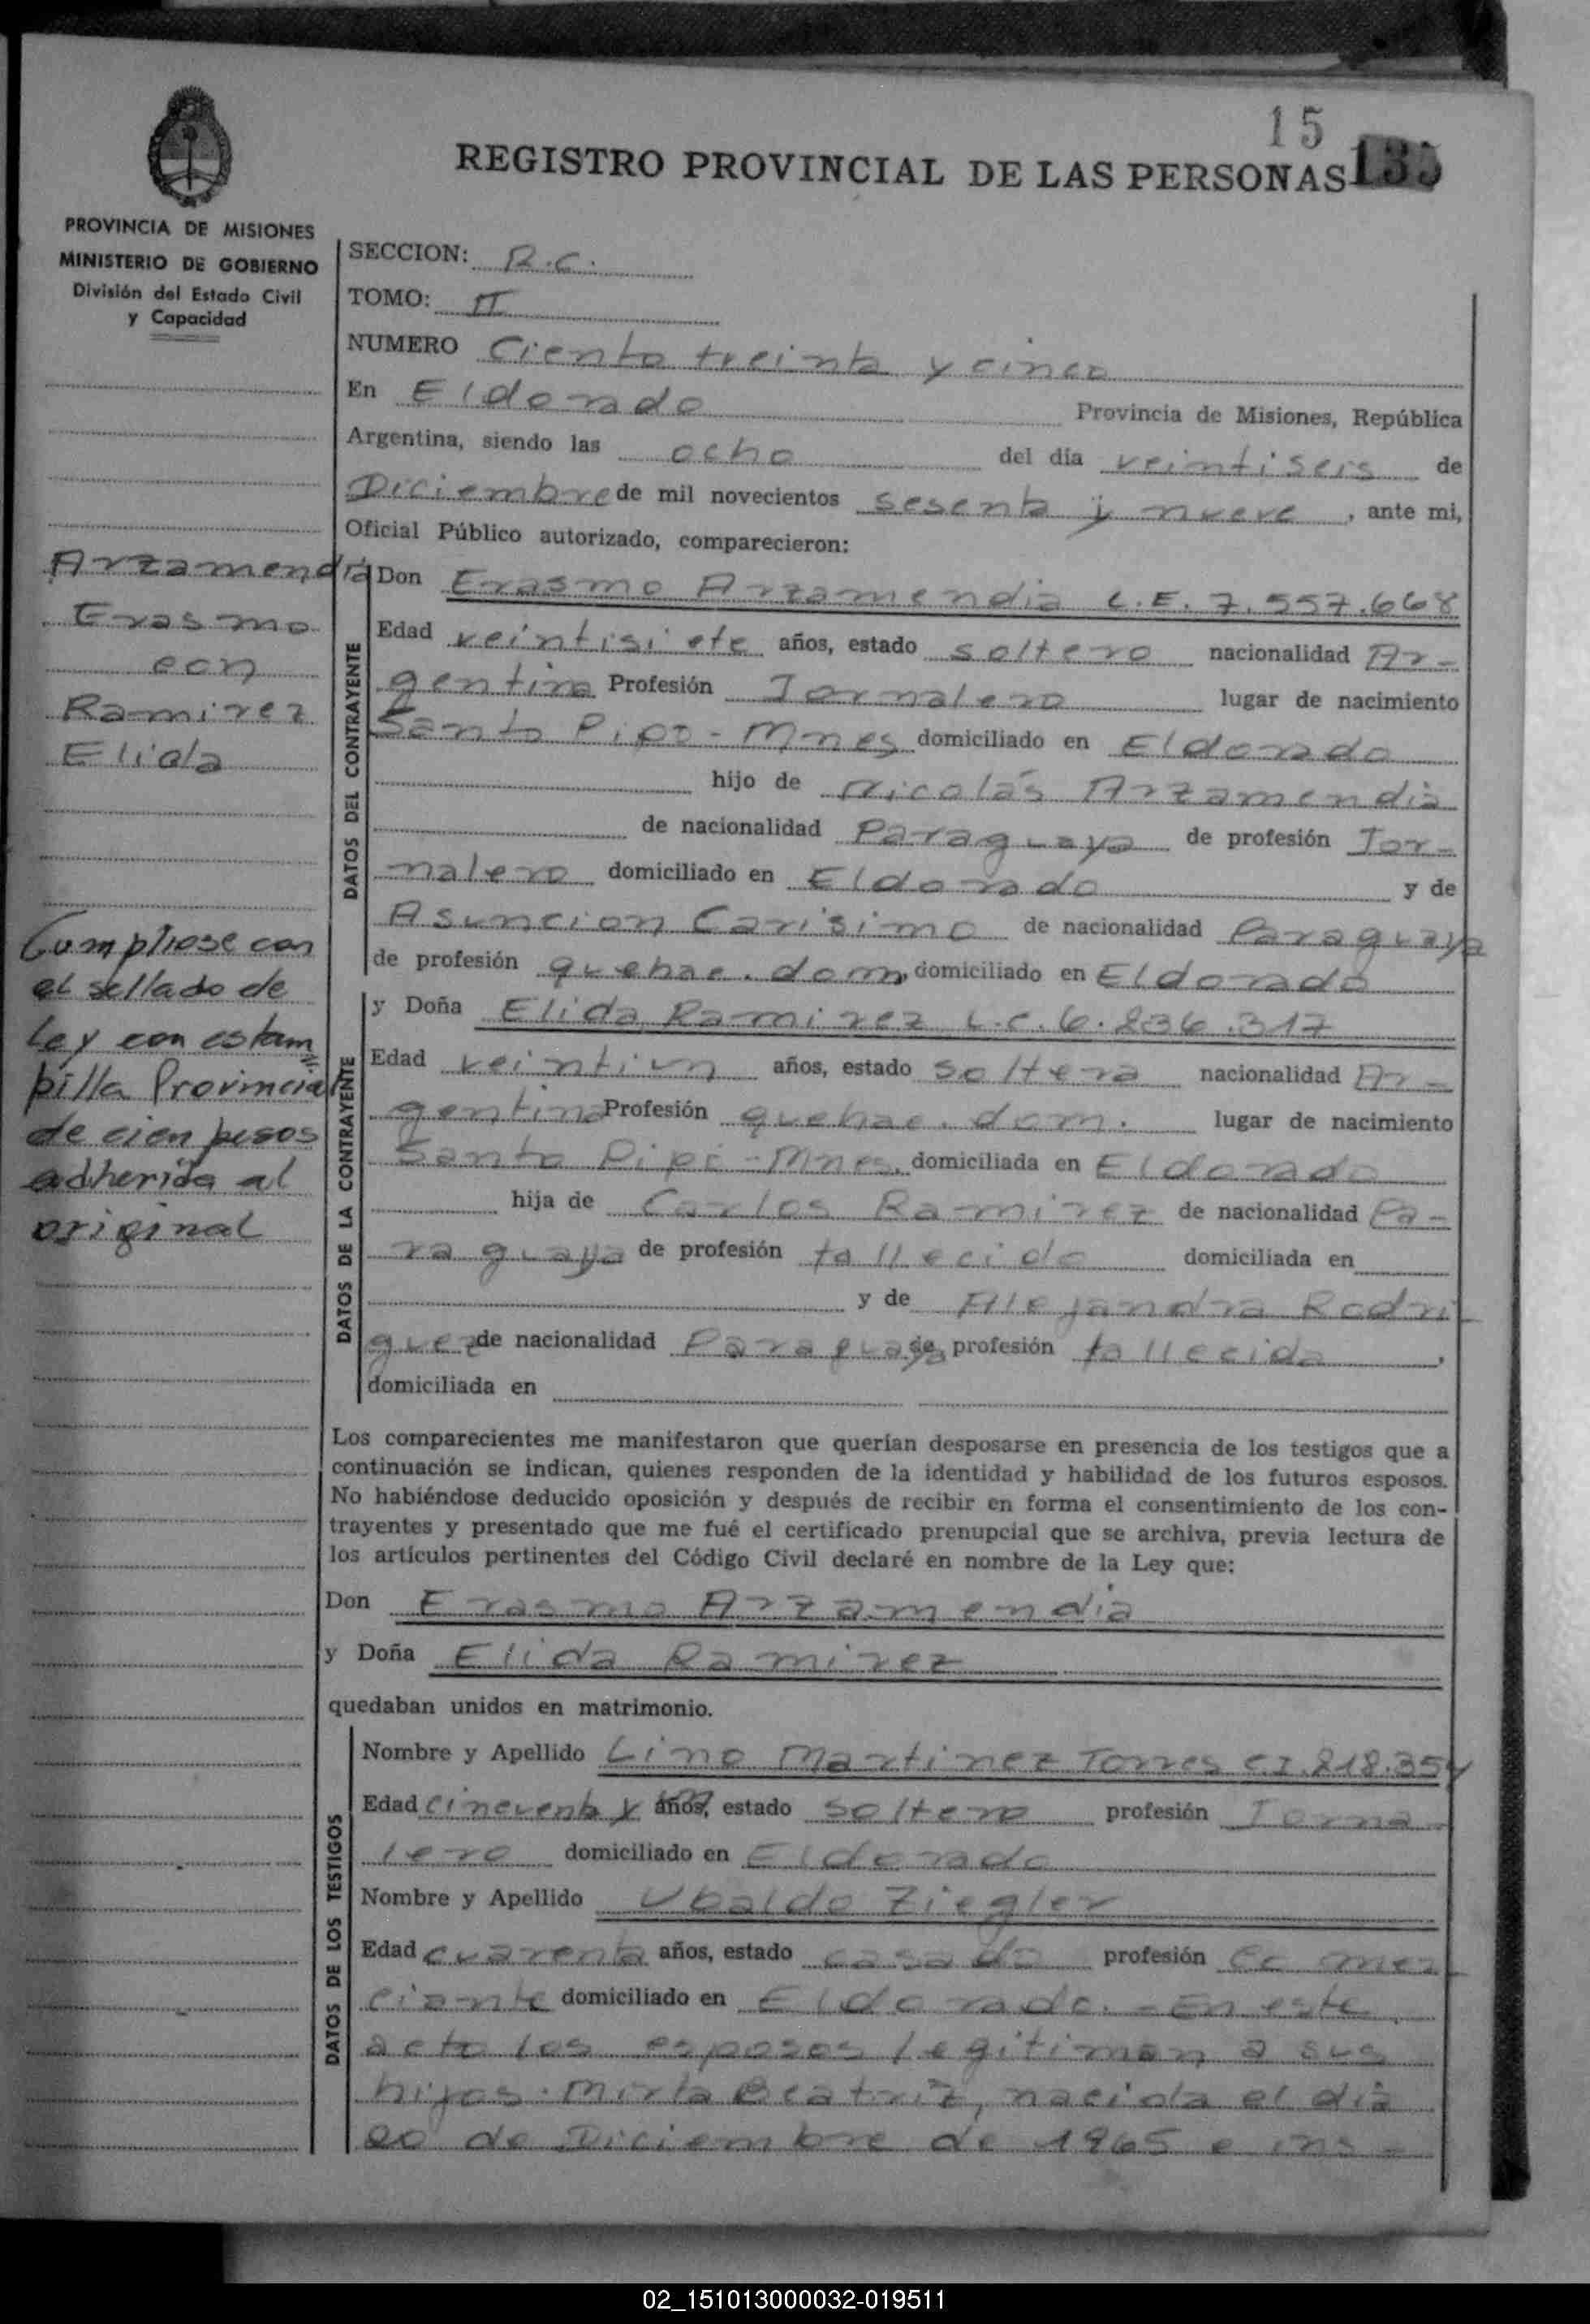 15
REGISTRO PROVINCIAL DE LAS PERSONAS 135
PROVINCIA DE MISIONES
MINISTERIO DE GOBIERNO
División del Estado Civil
y Capacidad
SECCION: R.C.
TOMO: II
NUMERO Ciento treinta y cinco
En Eldorado Provincia de Misiones, República
Argentina, siendo las ocho del día veintiseis de
Diciembre de mil novecientos sesenta y nueve, ante mi,
Oficial Público autorizado, comparecieron:
Arzamendia
Erasmo
con
Ramirez
Elida
Cumpliose con
el sellado de
Ley con estam
pilla Provincial
de cien pesos
adherida al
original
DATOS DEL CONTRAYENTE
Don Erasmo Arzamendia L.E. 7.557.668
Edad veintisiete años, estado soltero nacionalidad Ar-
gentina Profesión Jornalero lugar de nacimiento
Santo Pipó - Mnes domiciliado en Eldorado
hijo de Nicolás Arzamendia
de nacionalidad Paraguaya de profesión Jor-
nalero domiciliado en Eldorado y de
Asuncion Carisimo de nacionalidad Paraguaya
de profesión quehac. dom, domiciliado en Eldorado
DATOS DE LA CONTRAYENTE
y Doña Elida Ramirez L.C. 6.836.317
Edad veintiun años, estado soltera nacionalidad Ar-
gentina Profesión quehac. dom. lugar de nacimiento
Santo Pipó - Mnes, domiciliada en Eldorado
hija de Carlos Ramirez de nacionalidad Pa-
raguaya de profesión fallecido domiciliada en
y de Alejandra Rodri-
guez de nacionalidad Paraguaya de profesión fallecida,
domiciliada en
Los comparecientes me manifestaron que querían desposarse en presencia de los testigos que a
continuación se indican, quienes responden de la identidad y habilidad de los futuros esposos.
No habiéndose deducido oposición y después de recibir en forma el consentimiento de los con-
trayentes y presentado que me fué el certificado prenupcial que se archiva, previa lectura de
los artículos pertinentes del Código Civil declaré en nombre de la Ley que:
Don Erasmo Arzamendia
y Doña Elida Ramirez
quedaban unidos en matrimonio.
DATOS DE LOS TESTIGOS
Nombre y Apellido Lino Martinez Torres C.I. 218.354
Edad cincuenta y años, estado soltero profesión Jorna-
lero domiciliado en Eldorado
Nombre y Apellido Ubaldo Ziegler
Edad cuarenta años, estado casado profesión Comer-
ciante domiciliado en Eldorado. - En este
acto los esposos legitiman a sus
hijos: Mirta Beatriz, nacida el dia
20 de Diciembre de 1965 e ins-
02_151013000032-019511